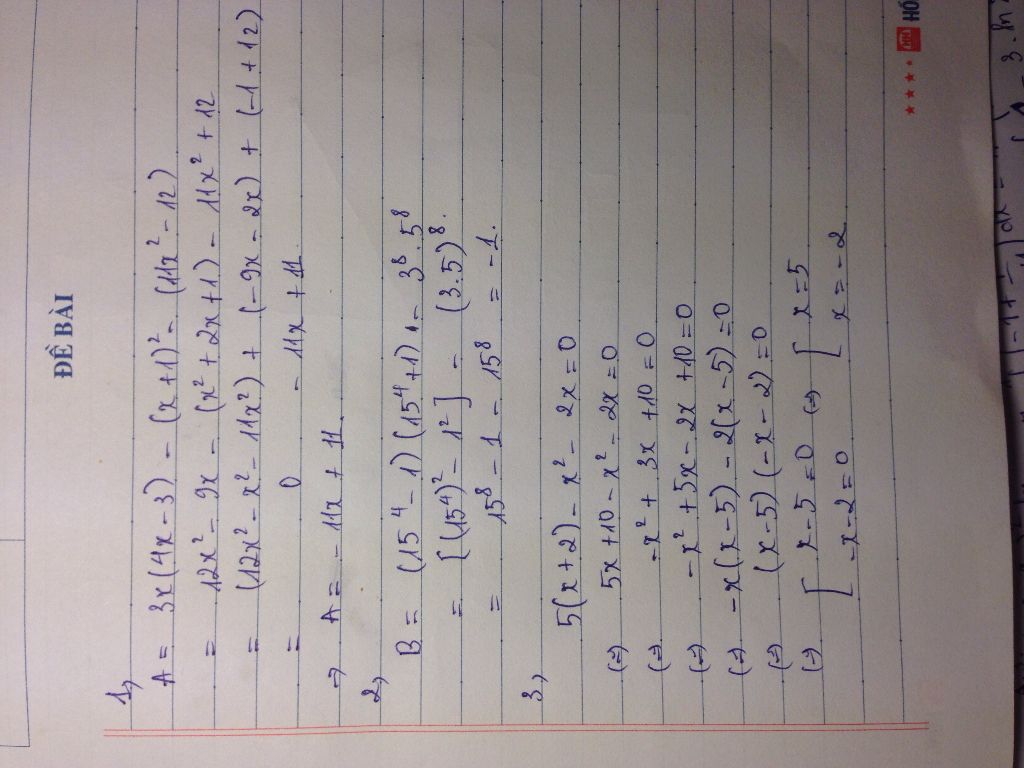 ĐỀ BÀI
1,
A = 3x(4x-3) - (x+1)² - (11x² - 12)
= 12x² - 9x - (x² + 2x + 1) - 11x² + 12
= (12x² - x² - 11x²) + (-9x - 2x) + (-1 + 12)
= 0 - 11x + 11
=> A = -11x + 11.
2,
B = (15⁴ - 1)(15⁴ + 1) - 3⁸.5⁸
= [(15⁴)² - 1²] - (3.5)⁸.
= 15⁸ - 1 - 15⁸ = -1.
3,
5(x+2) - x² - 2x = 0
(=) 5x + 10 - x² - 2x = 0
(=) -x² + 3x + 10 = 0
(=) -x² + 5x - 2x + 10 = 0
(=) -x(x-5) - 2(x-5) = 0
(=) (x-5)(-x-2) = 0
(=) [ x - 5 = 0 (=) [ x = 5
[ -x - 2 = 0 [ x = -2
HỒ